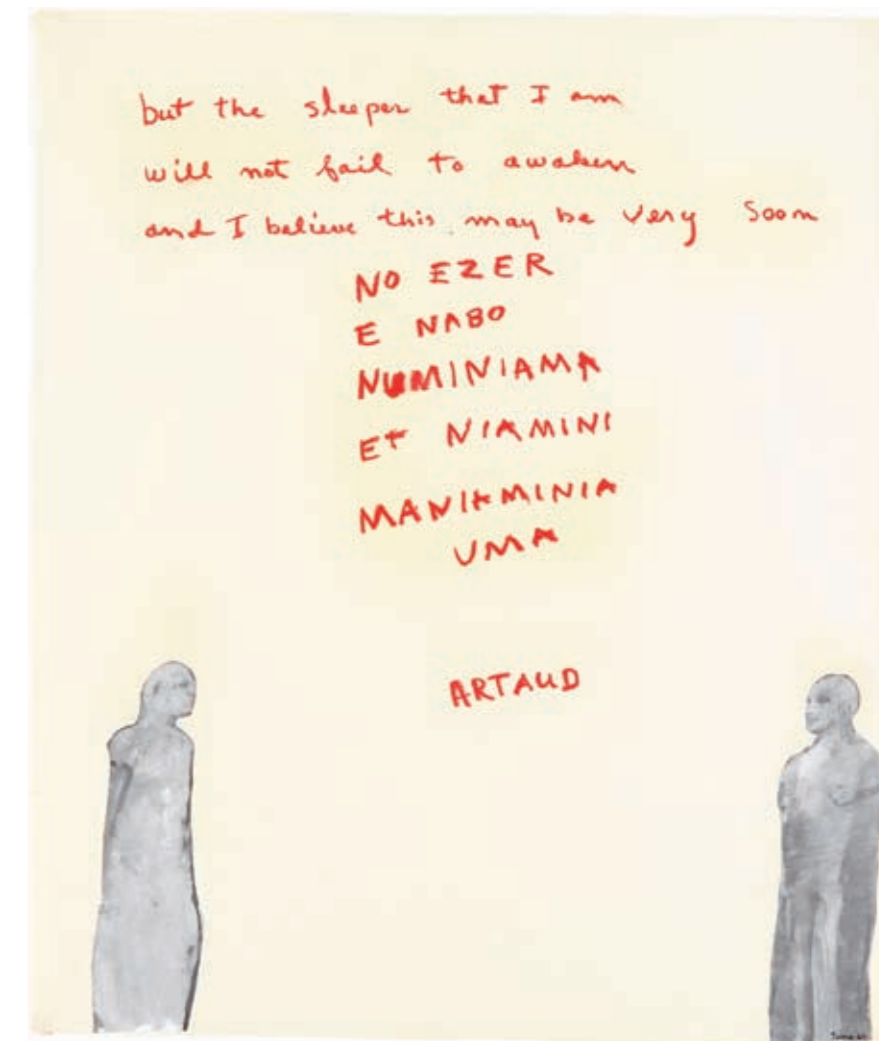 but the sleeper that I am
will not fail to awaken
and I believe this may be very soon
NO EZER
E NABO
NUMINIAMA
ET NIAMINI
MANIAMINIA
UMA
ARTAUD